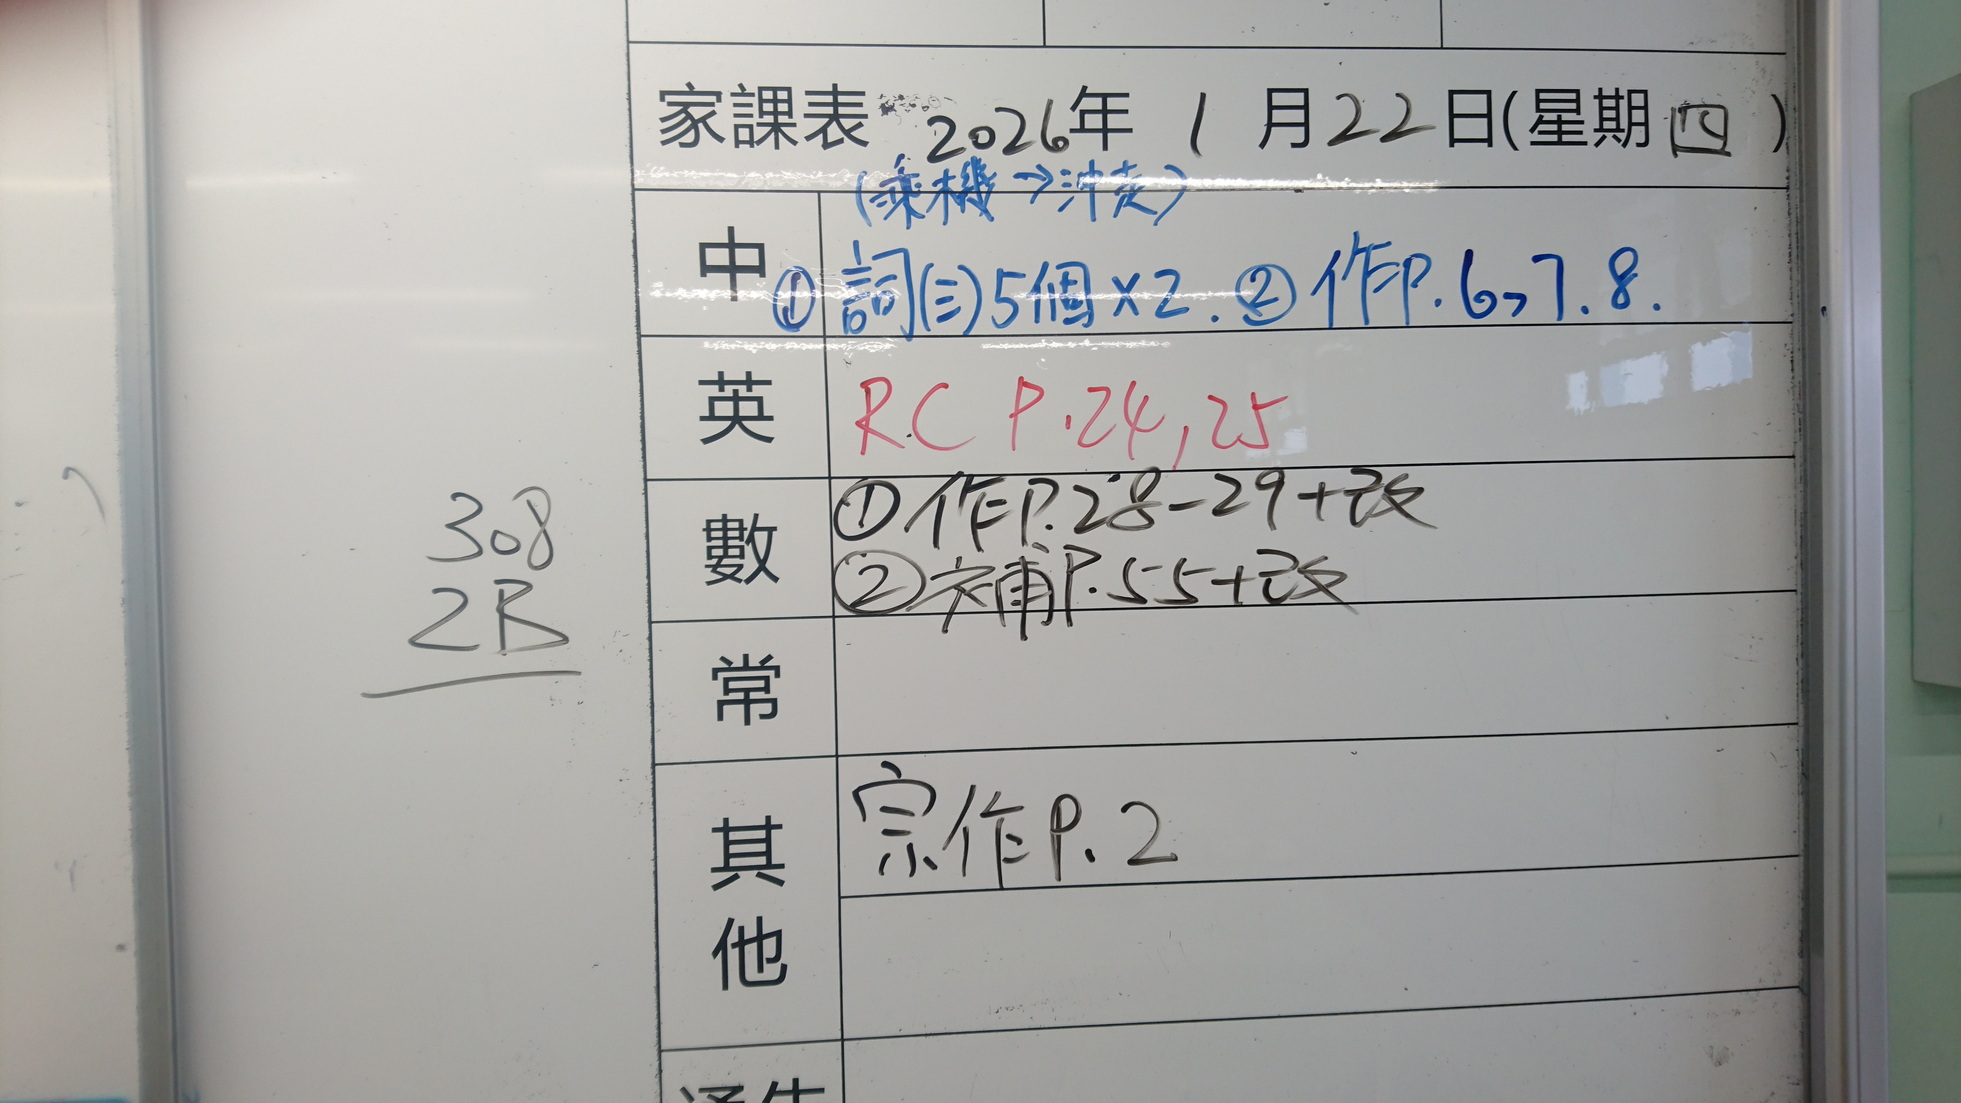 家課表 2026年 1 月22日(星期四)
(乘機→沖走)
中 ①詞(三)5個×2. ②作P.6,7.8.
英 RC P.24,25
數 ①作P.28-29+改
②補P.55+改
308
2B
常
其他 宗作P.2
通告